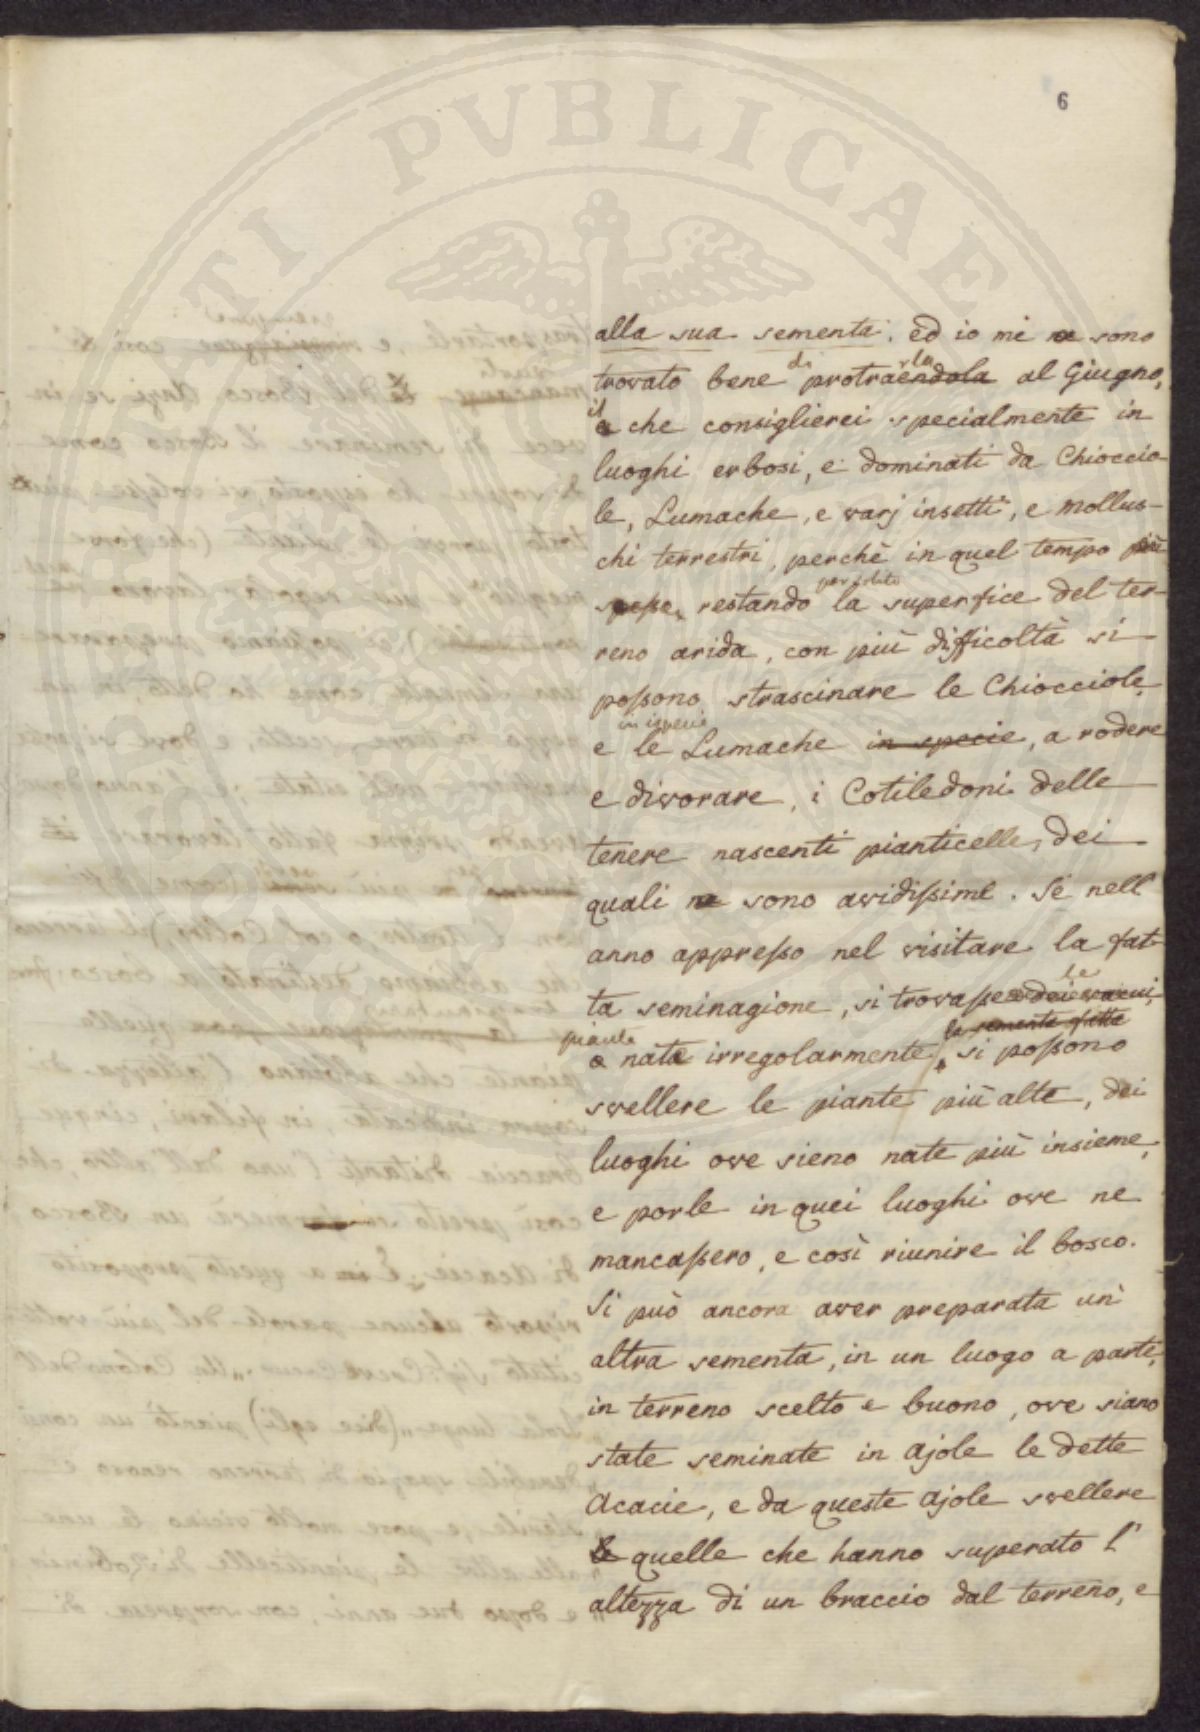 6
PVBLICAE
alla sua sementa. ed io mi ne sono
di rla
trovato bene protraendola al Giugno,
il
e che consiglierei specialmente in
luoghi erbosi, e dominati da Chioccio
le, Lumache, e varj insetti, e mollus-
chi terrestri, perchè in quel tempo più
per solito
spesse, restando la superfice del ter-
reno arida, con più difficoltà si
possono strascinare le Chiocciole
in ispecie
e le Lumache in specie, a rodere
e divorare, i Cotiledoni delle
tenere nascenti pianticelle, dei
quali ne sono avidissime. Se nell
anno appresso nel visitare la fat-
le
ta seminagione, si trovasse dei vacui,
piante la sementa fatta
o nate irregolarmente, si possono
svellere le piante più alte, dei
luoghi ove sieno nate più insieme,
e porle in quei luoghi ove ne
mancassero, e così riunire il bosco.
Si può ancora aver preparata un'
altra sementa, in un luogo a parte,
in terreno scelto e buono, ove siano
state seminate in Ajole le dette
Acacie, e da queste Ajole svellere
quelle che hanno superato l'
altezza di un braccio dal terreno, e